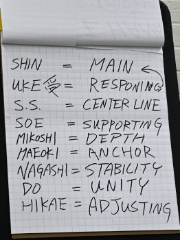 SHIN = MAIN
UKE 受 = RESPONING
S.S. = CENTER LINE
SOE = SUPPORTING
MIKOSHI = DEPTH
MAEOKI = ANCHOR
NAGASHI = STABILITY
DO = UNITY
HIKAE = ADJUSTING